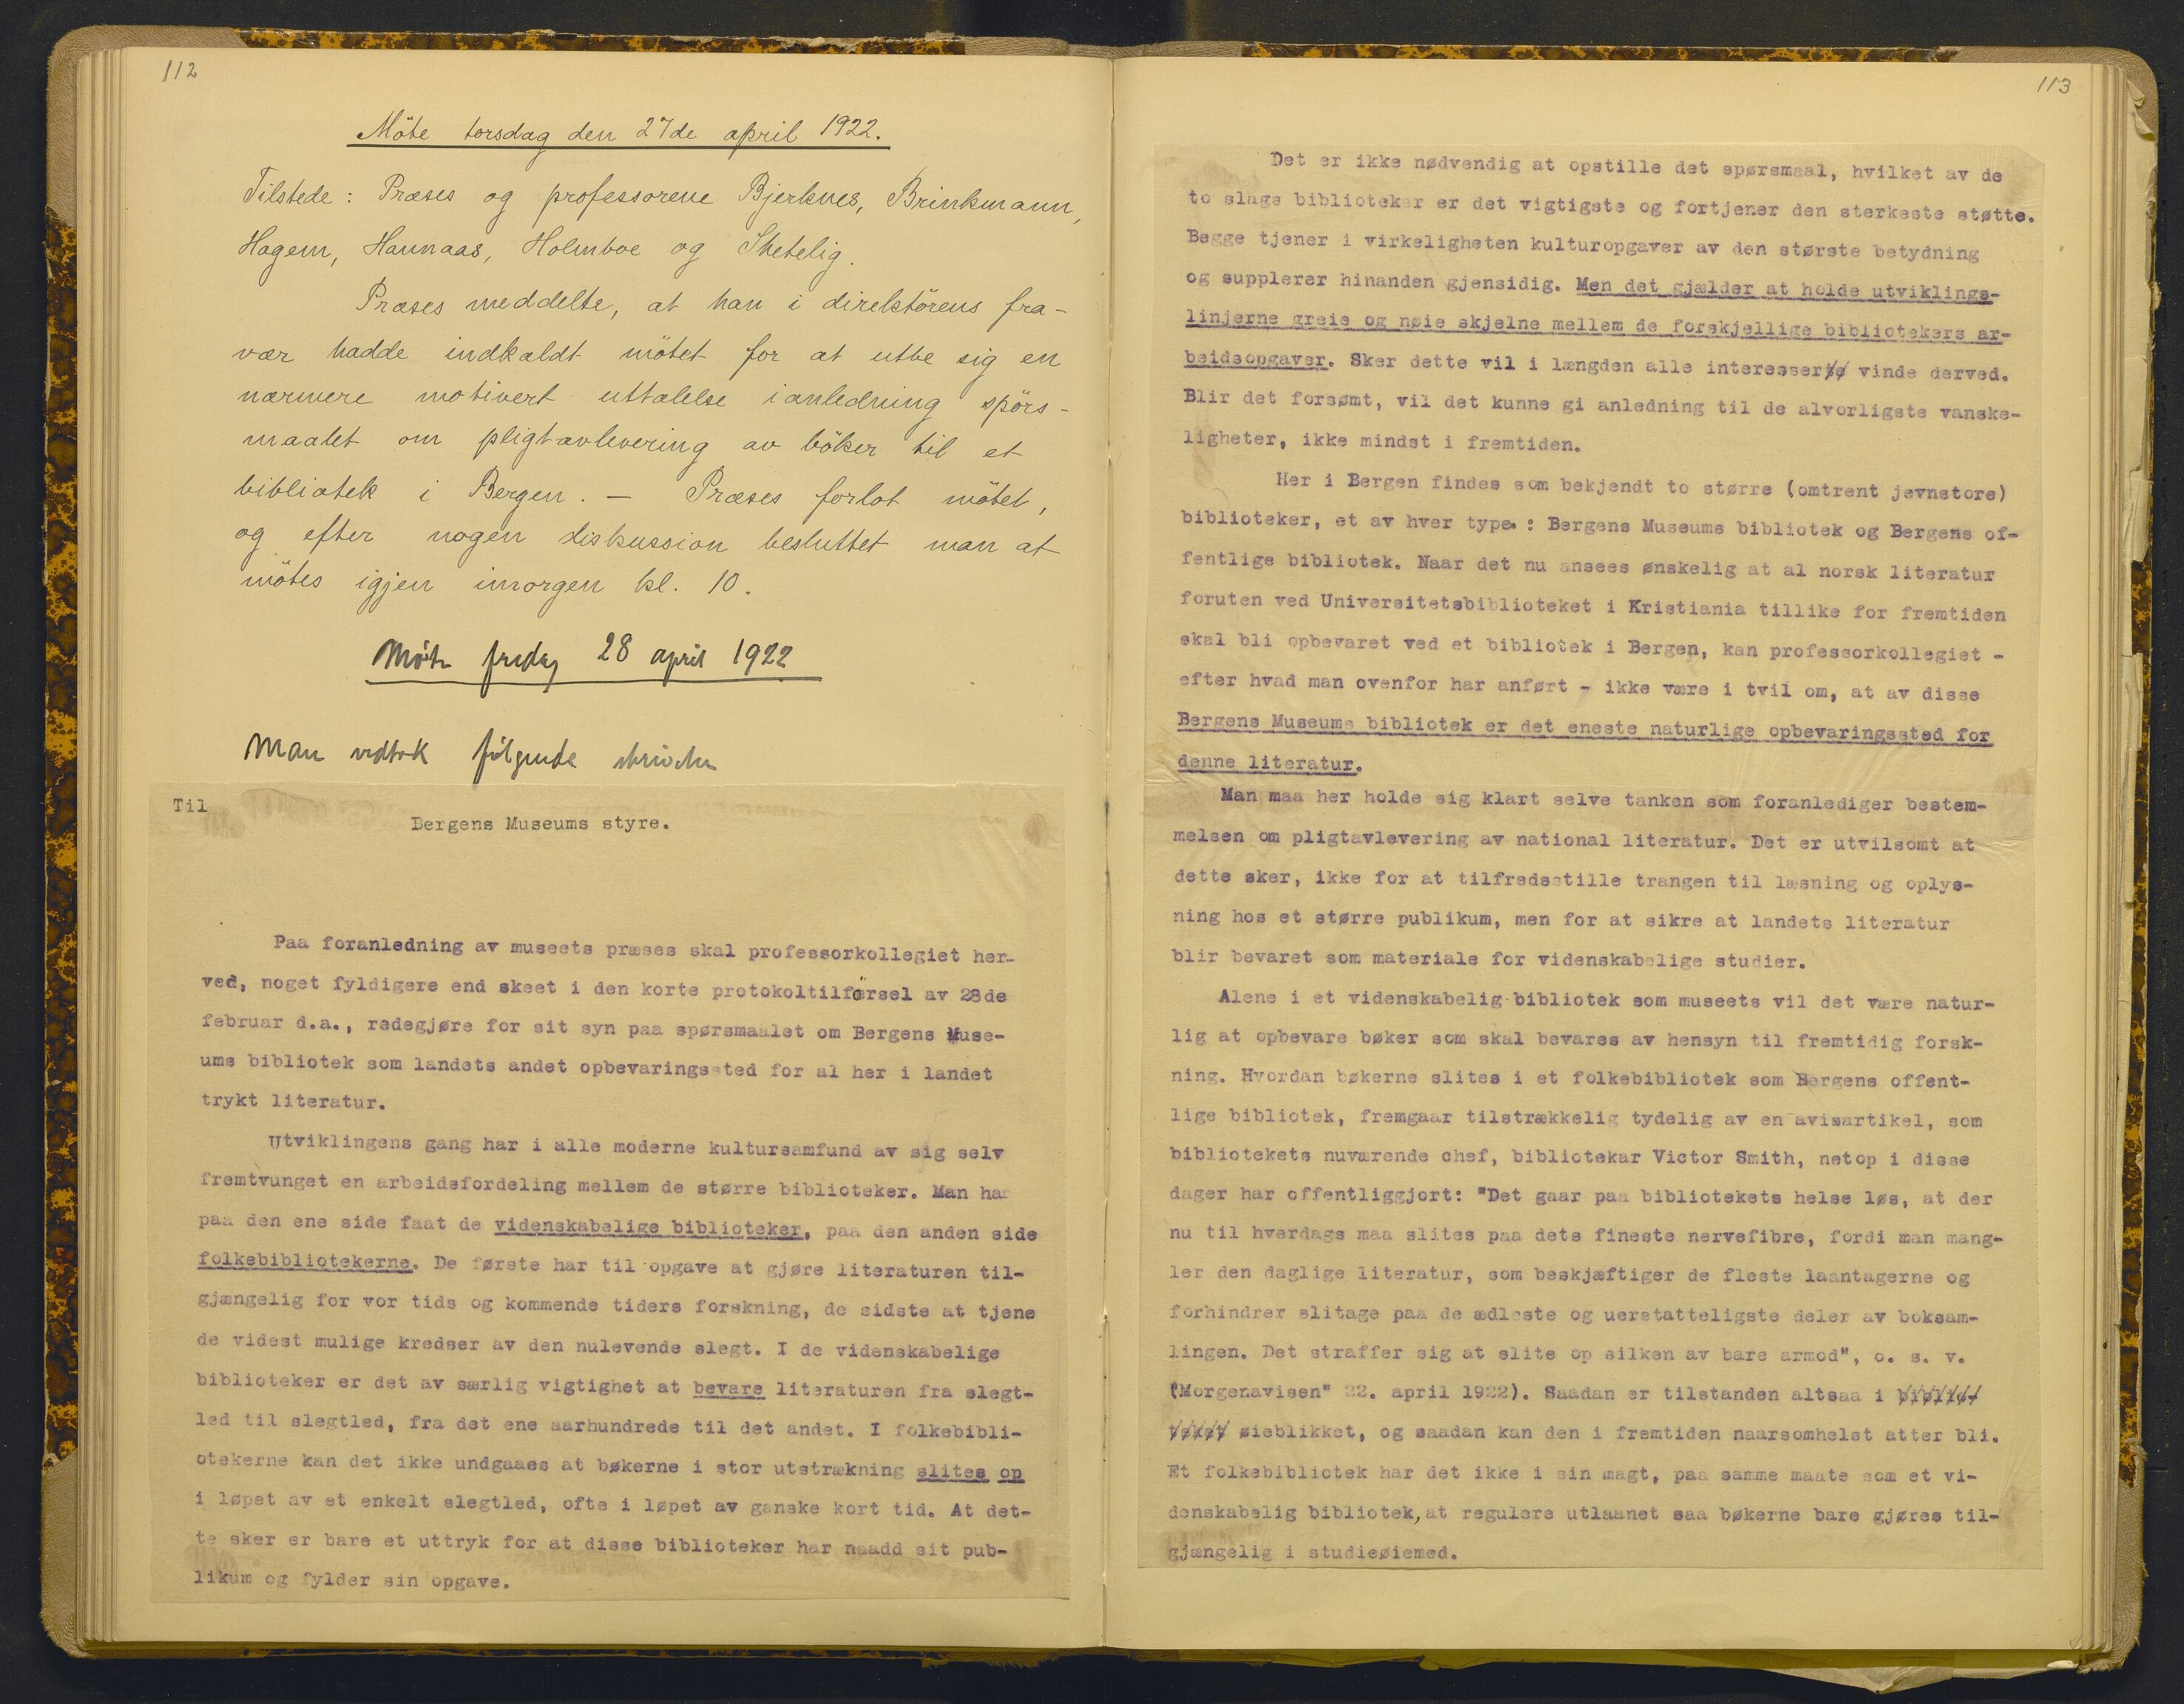 112
Möte torsdag den 27de april 1922.
Tilstede: Præses og professorene Bjerknes, Brinkmann,
Hagem, Hannaas, Holmboe og Shetelig.
Præses meddelte, at han i direktörens fra-
vær hadde indkaldt mötet for at utbe sig en
nærmere motivert uttalelse ianledning spörs-
maalet om pligtavlevering av böker til et
bibliotek i Bergen. — Præses forlot mötet,
og efter nogen diskussion besluttet man at
mötes igjen imorgen kl. 10.
Möte fredag 28 april 1922
Man vedtok fölgende skrivelse
Til
Bergens Museums styre.
Paa foranledning av museets præses skal professorkollegiet her-
ved, noget fyldigere end skeet i den korte protokoltilförsel av 28de
februar d.a., redegjøre for sit syn paa spørsmaalet om Bergens Muse-
ums bibliotek som landets andet opbevaringssted for al her i landet
trykt literatur.
Utviklingens gang har i alle moderne kultursamfund av sig selv
fremtvunget en arbeidsfordeling mellem de større biblioteker. Man har
paa den ene side faat de videnskabelige biblioteker, paa den anden side
folkebibliotekerne. De første har til opgave at gjøre literaturen til-
gjængelig for vor tids og kommende tiders forskning, de sidste at tjene
de videst mulige kredser av den nulevende slegt. I de videnskabelige
biblioteker er det av særlig vigtighet at bevare literaturen fra slegt-
led til slegtled, fra det ene aarhundrede til det andet. I folkebibli-
otekerne kan det ikke undgaaes at bøkerne i stor utstrækning slites op
i løpet av et enkelt slegtled, ofte i løpet av ganske kort tid. At det-
te sker er bare et uttryk for at disse biblioteker har naadd sit pub-
likum og fylder sin opgave.
113
Det er ikke nødvendig at opstille det spørsmaal, hvilket av de
to slags biblioteker er det vigtigste og fortjener den sterkeste støtte.
Begge tjener i virkeligheten kulturopgaver av den største betydning
og supplerer hinanden gjensidig. Men det gjælder at holde utviklings-
linjerne greie og nøie skjelne mellem de forskjellige bibliotekers ar-
beidsopgaver. Sker dette vil i længden alle interesser vinde derved.
Blir det forsømt, vil det kunne gi anledning til de alvorligste vanske-
ligheter, ikke mindst i fremtiden.
Her i Bergen findes som bekjendt to større (omtrent jevnstore)
biblioteker, et av hver type.: Bergens Museums bibliotek og Bergens of-
fentlige bibliotek. Naar det nu ansees ønskelig at al norsk literatur
foruten ved Universitetsbiblioteket i Kristiania tillike for fremtiden
skal bli opbevaret ved et bibliotek i Bergen, kan professorkollegiet -
efter hvad man ovenfor har anført - ikke være i tvil om, at av disse
Bergens Museums bibliotek er det eneste naturlige opbevaringssted for
denne literatur.
Man maa her holde sig klart selve tanken som foranlediger bestem-
melsen om pligtavlevering av national literatur. Det er utvilsomt at
dette sker, ikke for at tilfredsstille trangen til læsning og oplys-
ning hos et større publikum, men for at sikre at landets literatur
blir bevaret som materiale for videnskabelige studier.
Alene i et videnskabelig bibliotek som museets vil det være natur-
lig at opbevare bøker som skal bevares av hensyn til fremtidig forsk-
ning. Hvordan bøkerne slites i et folkebibliotek som Bergens offent-
lige bibliotek, fremgaar tilstrækkelig tydelig av en avisartikel, som
bibliotekets nuværende chef, bibliotekar Victor Smith, netop i disse
dager har offentliggjort: "Det gaar paa bibliotekets helse løs, at der
nu til hverdags maa slites paa dets fineste nervefibre, fordi man mang-
ler den daglige literatur, som beskjæftiger de fleste laantagerne og
forhindrer slitage paa de ædleste og uerstatteligste deler av boksam-
lingen. Det straffer sig at slite op silken av bare armod", o. s. v.
("Morgenavisen" 22. april 1922). Saadan er tilstanden altsaa i
øieblikket, og saadan kan den i fremtiden naarsomhelst atter bli.
Et folkebibliotek har det ikke i sin magt, paa samme maate som et vi-
denskabelig bibliotek, at regulere utlaanet saa bøkerne bare gjøres til-
gjængelig i studieøiemed.